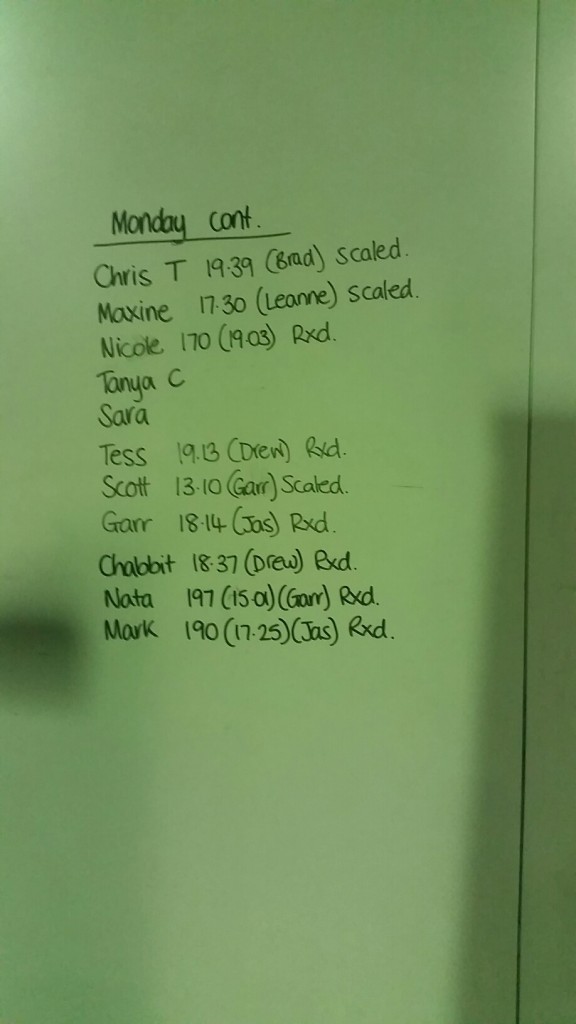 Monday cont.
Chris T 19.39 (Brad) scaled.
Maxine 17.30 (Leanne) scaled.
Nicole 170 (19.03) Rxd.
Tanya C
Sara
Tess 19.13 (Drew) Rxd.
Scott 13.10 (Garr) Scaled.
Garr 18.14 (Jas) Rxd.
Chabbit 18.37 (Drew) Rxd.
Nata 197 (15.01) (Garr) Rxd.
Mark 190 (17.25) (Jas) Rxd.